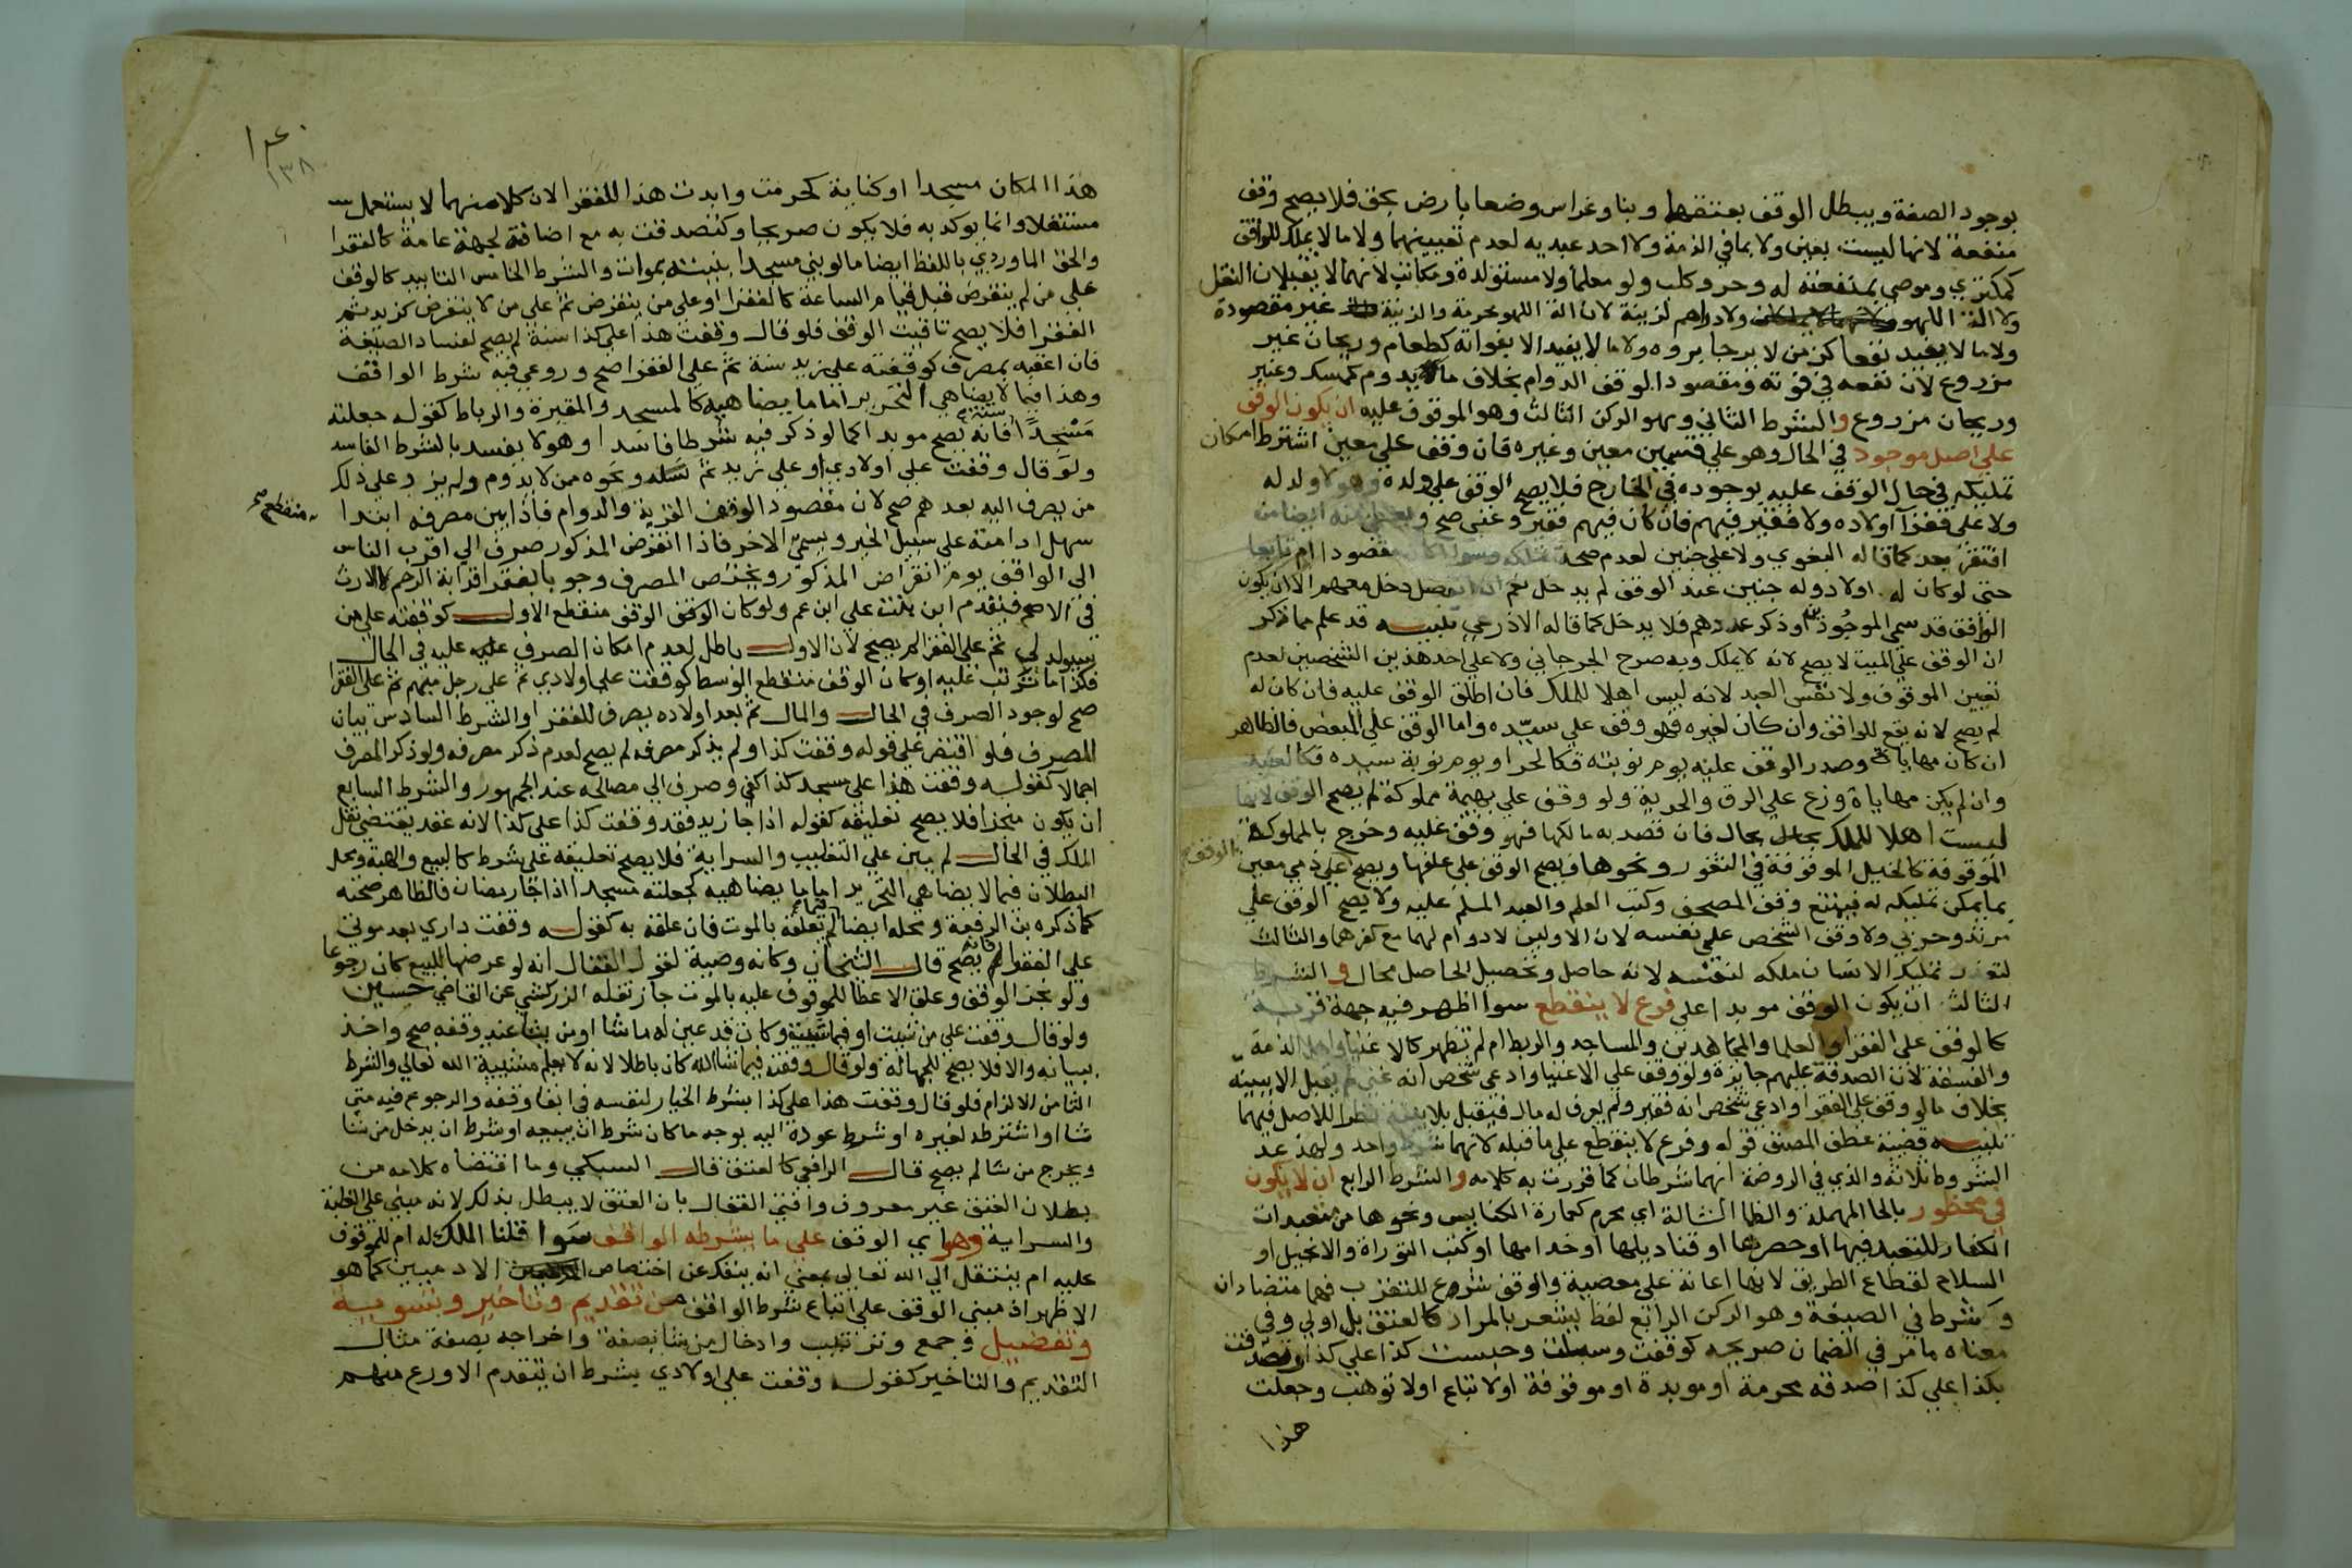 بوجود الصفة ويبطل الوقف بعتقهما وبنا وغراس وضعا بارض بحق فلا يصح وقف
منفعة لانها ليست بعين ولا بما في الذمة ولا احد عبديه لعدم تعيينهما ولا ما لا يملك للواقف
كمكتري وموصي بمنفعته له وحر وكلب ولو معلما ولا مستولدة ومكاتب لانهما لا يقبلان النقل
ولا الة اللهو ولا دراهم لزينة لان الة اللهو محرمة والزينة غير مقصودة
ولا ما لا يفيد نفعا كزمن لا يرجا بروه ولا ما لا يفيد الا بفواته كطعام وريحان غير
مزروع لان نفعه في فوته ومقصود الوقف الدوام بخلاف ما يدوم كمسك وعنبر
وريحان مزروع والشرط الثاني وهو الركن الثالث وهو الموقوف عليه ان يكون الوقف
على اصل موجود في الحال وهو علي قسمين معين وغيره فان وقف علي معين اشترط امكان
تمليكه في حال الوقف عليه بوجوده في الخارج فلا يصح الوقف علي ولده وهو لا ولد له
ولا على فقرآ اولاده ولا فقير فيهم فان كان فيهم فقير وغنى صح ويعطي منه ايضا من
افتقر بعد كما قاله البغوي ولا على جنين لعدم صحة تملكه وسوا اكان مقصودا ام تابعا
حتى لو كان له اولاد وله جنين عند الوقف لم يدخل نعم ان انفصل دخل معهم الا ان يكون
الواقف قد سمى الموجودين وذكر عددهم فلا يدخل كما قاله الاذرعي تنبيه قد علم مما ذكر
ان الوقف علي الميت لا يصح لانه لا يملك وبه صرح الجرجاني ولا علي احد هذين الشخصين لعدم
تعين الموقوف ولا نفس العبد لانه ليس اهلا للملك فان اطلق الوقف عليه فان كان له
لم يصح لانه يقع للواقف وان كان لغيره فهو وقف علي سيده واما الوقف علي المبعض فالظاهر
ان كان مهاياة وصدر الوقف عليه يوم نوبته فكالحر او يوم نوبة سيده فكالعبد
وان لم يكن مهاياة وزع علي الرق والحرية ولو وقف علي بهيمة مملوكة لم يصح الوقف لانها
ليست اهلا للملك بحال بحال فان قصد به مالكها فهو وقف عليه وخرج بالمملوكة
الموقوفة كالخيل الموقوفة في الثغور ونحوها فيصح الوقف علي علفها ويصح علي ذمي معين
الوقف
بما يمكن تمليكه له فيمتنع وقف المصحف وكتب العلم والعبد المسلم عليه ولا يصح الوقف علي
مرتد وحربي ولا وقف الشخص علي نفسه لان الاولين لا دوام لهما مع كفرهما والثالث
لتعذر تمليك الانسان ملكه لنفسه لانه حاصل وتحصيل الحاصل محال و الشرط
الثالث ان يكون الوقف موبدا على فرع لا ينقطع سوا اظهر فيه جهة قربة
كالوقف على الفقرا والعلما والمجاهدين والمساجد والربط ام لم تظهر كالاغنيا واهل الذمة
والفسقة لان الصدقة عليهم جايزة ولو وقف علي الاغنيا وادعى شخص انه غني لم يقبل الا ببينه
بخلاف ما لو وقف على الفقرا وادعي شخص انه فقير ولم يعرف له مال فيقبل بلا بينة نظرا للاصل فيهما
تنبيه قضية عطف المصنف قوله وفرع لا ينقطع علي ما قبله لانهما شرط واحد ولهذ عد
الشروط ثلاثة والذي في الروضة انهما شرطان كما قررت به كلامه والشرط الرابع ان لا يكون
في محظور بالحا المهملة والظا الشالة اي محرم كعمارة الكنايس ونحوها من متعبدات
الكفار للتعبد فيها او حصرها او قناديلها او خدامها او كتب التوراة والانجيل او
السلاح لقطاع الطريق لانها اعانة على معصية والوقف شروع للتقرب فهما متضادان
وشرط في الصيغة وهو الركن الرابع لفظ يشعر بالمراد كالعتق بل اولي وفي
معناه ما مر في الضمان صريحه كوقفت وسبلت وحبست كذا علي كذا او تصدقت
بكذا علي كذا صدقة محرمة او موبدة او موقوفة او لا تباع اولا توهب وجعلت
هذا
١٤٠
١٣٨
هذا المكان مسجدا او كناية كحرمت وابدت هذا للفقرا لان كلا منهما لا يستعمل
مستقلا وانما يوكد به فلا يكون صريحا وكتصدقت به مع اضافة لجهة عامة كالفقرا
والحق الماوردي باللفظ ايضا ما لو بني مسجدا بنيته بموات والشرط الخامس التابيد كالوقف
علي من لم ينقرض قبل قيام الساعة كالفقرا او على من ينقرض ثم علي من لا ينقرض كزيد ثم
الفقرا فلا يصح تاقيت الوقف فلو قال وقفت هذا على كذا سنة لم يصح لفساد الصيغة
فان اعقبه بمصرف كوقفته على زيد سنة ثم على الفقرا صح وروعي فيه شرط الواقف
وهذا فيما لا يضاهي التحرير اما ما يضاهيه كالمسجد والمقبرة والرباط كقوله جعلته
مسجدا سنة فانه يصح موبدا كما لو ذكر فيه شرطا فاسدا وهو لا يفسد بالشرط الفاسد
ولو قال وقفت علي اولادي او علي زيد ثم نسله ونحوه ممن لا يدوم ولم يزد على ذلك
من يصرف اليه بعدهم صح لان مقصود الوقف القربة والدوام فاذا بين مصرفه ابتدا
منقطع صح
سهل ادامته على سبيل الخير ويسمى الاخر فاذا انقرض المذكور صرف الي اقرب الناس
الى الواقف يوم انقراض المذكور ويختص المصرف وجوبا بفقرا قرابة الرحم لا الارث
في الاصح فيقدم ابن بنت علي ابن عم ولو كان الوقف الوقف منقطع الاول كوقفته على من
سيولد لي ثم على الفقرا لم يصح لان الاول باطل لعدم امكان الصرف عليه عليه في الحال
فكذا ما ترتب عليه او كان الوقف منقطع الوسط كوقفت علي اولادي ثم علي رجل منهم ثم على الفقرا
صح لوجود الصرف في الحال والمال ثم بعد اولاده يصرف للفقرا والشرط السادس بيان
المصرف فلو اقتصر علي قوله وقفت كذا ولم يذكر مصرفه لم يصح لعدم ذكر مصرفه ولو ذكر المصرف
اجمالا كقوله وقفت هذا على مسجد كذا كفى وصرف الي مصالحه عند الجمهور والشرط السابع
ان يكون منجزا فلا يصح تعليقه كقوله اذا جا زيد فقد وقفت كذا على كذا لانه عقد يقتضي نقل
الملك في الحال لم يبن علي التغليب والسراية فلا يصح تعليقه على شرط كالبيع والهبة ومحل
البطلان فيما لا يضاهي التحرير اما ما يضاهيه كجعلته مسجدا اذا جا رمضان فالظاهر صحته
كما ذكره بن الرفعة ومحله ايضا ما لم تعلقه بالموت فان علقه به كقوله وقفت داري بعد موتي
على الفقرا فانه يصح قال الشيخان وكانه وصية لقول القفال انه لو عرضها للبيع كان رجوعا
ولو نجز الوقف وعلق الاعطا للموقوف عليه بالموت جاز نقله الزركشي عن القاضي حسين
ولو قال وقفت علي من شيت او فيما شيت وكان قد عين له ما شا او من شا عند وقفه صح واخذ
ببيانه والا فلا يصح للجهالة ولو قال وقفته فيما شا الله كان باطلا لانه لا يعلم مشيية الله تعالي والشرط
الثامن الالزام فلو قال وقفت هذا على كذا بشرط الخيار لنفسه في ابقا وقفه والرجوع فيه متى
شا او اشترطه لغيره او شرط عوده اليه بوجه ما كان شرط ان يبيعه او شرط ان يدخل من شا
ويخرج من شا لم يصح قال الرافعي كالعتق قال السبكي وما اقتضاه كلامه من
بطلان العتق غير معروف وافتى القفال بان العتق لا يبطل بذلك لانه مبني على الغلبة
والسراية وهو اي الوقف على ما يشرطه الواقف سوا قلنا الملك له ام للموقوف
عليه ام ينتقل الي الله تعالى بمعني انه ينفك عن اختصاص الادميين كما هو
الاظهر اذ مبنى الوقف على اتباع شرط الواقف من تقديم وتاخير وتسوية
وتفضيل وجمع وترتيب وادخال من شا بصفة واخراجه بصفة مثال
التقديم والتاخير كقوله وقفت على اولادي بشرط ان يتقدم الاورع منهم